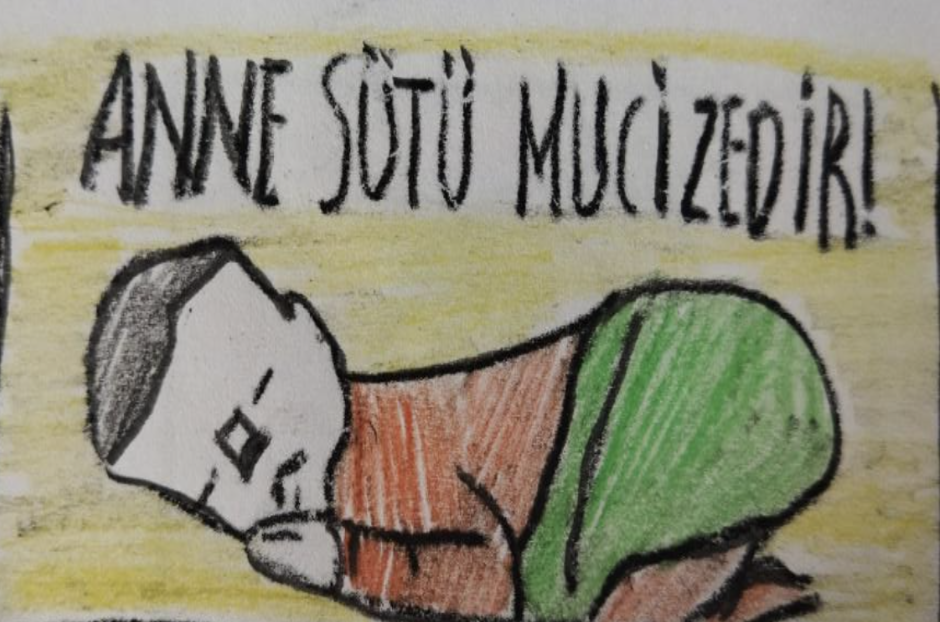 ANNE SÜTÜ MUCİZEDİR!